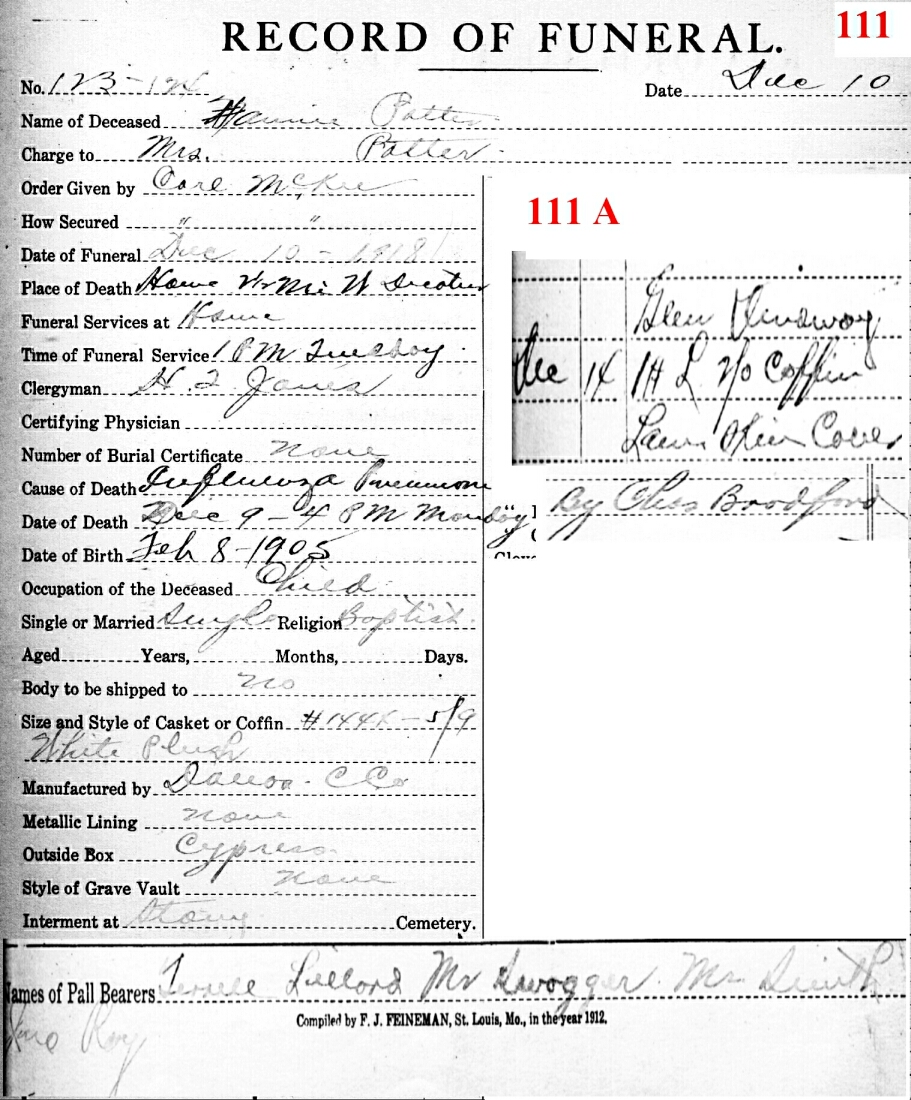 111
RECORD OF FUNERAL.
No. 123-124 Date Dec 10
Name of Deceased Potter
Charge to Mrs. Potter
Order Given by Carl McKee
How Secured " "
Date of Funeral Dec 10 - 1918
Place of Death Home
Funeral Services at Home
Time of Funeral Service 1 PM Tuesday
Clergyman Jones
Certifying Physician
Number of Burial Certificate none
Cause of Death Influenza Pneumonia
Date of Death Dec 9 - 4 PM Monday
Date of Birth Feb 8 - 1905
Occupation of the Deceased Child
Single or Married Single Religion Baptist
Aged Years, Months, Days.
Body to be shipped to no
Size and Style of Casket or Coffin 5/9
White Plush
Manufactured by C Co
Metallic Lining none
Outside Box Cypress
Style of Grave Vault none
Interment at Stony Cemetery.
111 A
Glen
Dec 14 Coffin
By Bradford
ames of Pall Bearers Lillard Mr Swogger Mr Smith
Roy
Compiled by F. J. FEINEMAN, St. Louis, Mo., in the year 1912.